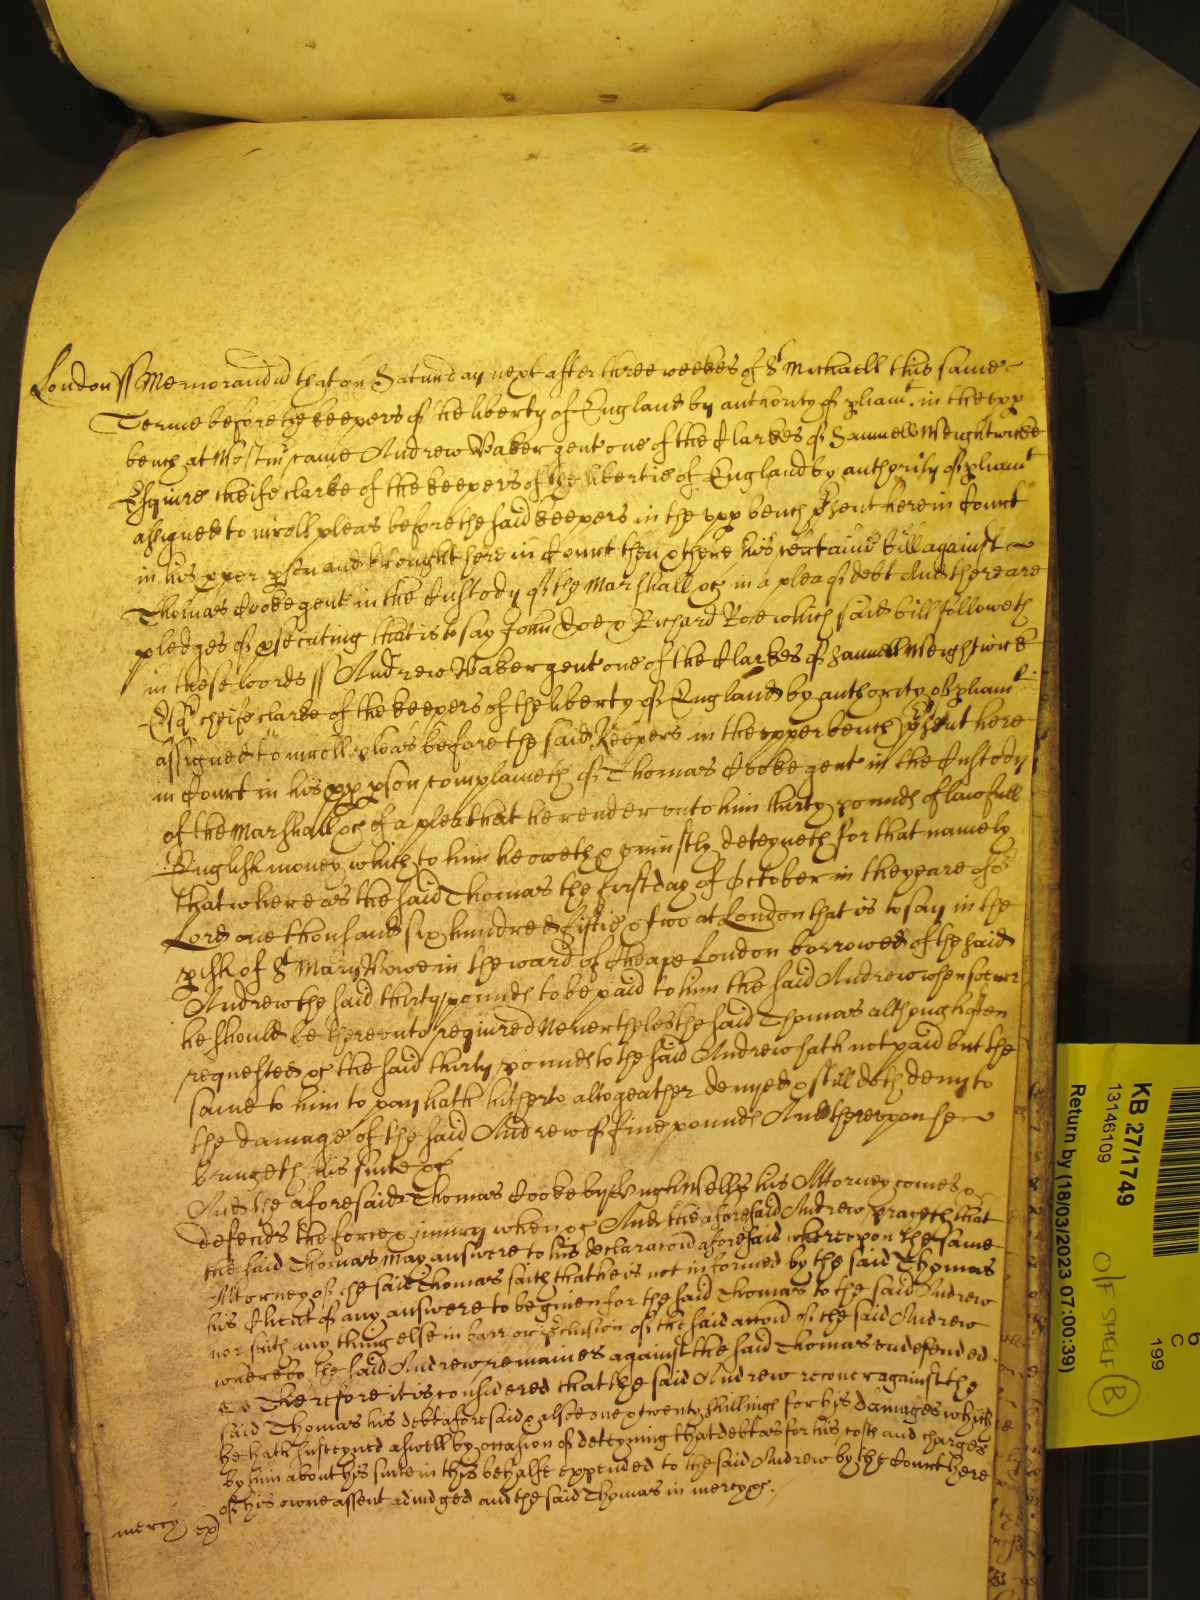 London ss Memorandu͞ that on Saturday next after three weekes of St Michaell this same
Terme before the keepers of the liberty of England by authority of pliamt. in the upp
bench at Westmr came Andrew Baker gent one of the Clarkes of Samuell Wightwicke
Esquire cheife clarke of the keepers of the libertie of England by authority of pliamt
assigned to inroll pleas before the said keepers in the upp bench psent here in Court
in his pper pson and brought here in Court then & there his certaine bill against
Thomas Cooke gent in the Custody of the Marshall &c in a plea of debt And there are
pledges of psecuting that is to say John Doe & Richard Roe which said bill followeth
in these words ss Andrew Baker gent one of the Clarkes of Samuell Wightwick
Esqr cheife clarke of the keepers of the liberty of England by authority of pliamt
assigned to inroll pleas before the said Keepers in the upper bench psent here
in Court in his pp pson complaineth of Thomas Cooke gent in the Custody
of the Marshall &c of a plea that he render unto him thirty pounds of lawfull
English money which to him he oweth & uniustly deteyneth for that namely
that whereas the said Thomas the first day of October in the yeare of or
Lord one thousand six hundred fiftie & two at London that is to say in the
pish of St Mary Bowe in the ward of Cheape London borrowed of the said
Andrew the said thirty pounds to be paid to him the said Andrew whensoever
he should be thereunto required Neverthelesse the said Thomas although often
requested &c the said thirty pounds to the said Andrew hath not paid but the
same to him to pay hath hitherto altogeather denyed & still doth deny to
the damage of the said Andrew of five pounds And thereupon he
bringeth his suite &c
And the aforesaid Thomas Cooke by Hugh Mells his Attorney comes &
defends the force & iniury when &c And the aforesaid Andrew prayeth that
the said Thomas may answere to his declaracon aforesaid whereupon the same
Attorney of the said Thomas saith that he is not informed by the said Thomas
his Client of any answere to be given for the said Thomas to the said Andrew
nor saith any thing else in barr or pclusion of the said accon of the said Andrew
whereby the said Andrew remaines against the said Thomas undefended
&c Therefore it is considered that the said Andrew recover against the
said Thomas his debt aforesaid & alsoe one & twenty shillings for his damages which
he hath susteyned aswell by occasion of deteyning that debt as for his costs and charges
by him about his suite in this behalfe expended to the said Andrew by the Court here
of his owne assent adiudged and the said Thomas in mercy &c.
mercy
KB 27/1749
13146109
Return by (18/03/2023 07:00:39)
6
C
199
Off SHELF B